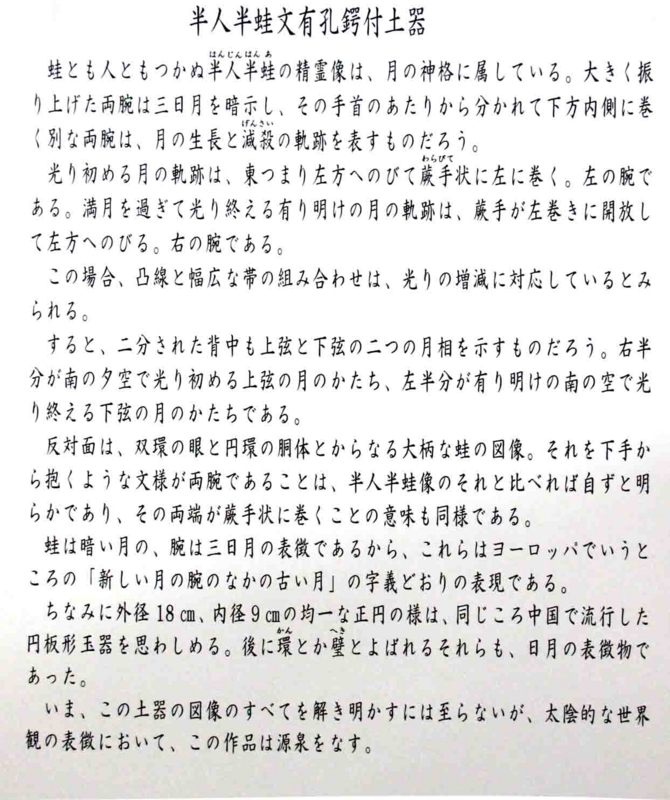 半人半蛙文有孔鍔付土器
蛙とも人ともつかぬ半人半蛙の精霊像は、月の神格に属している。大きく振
り上げた両腕は三日月を暗示し、その手首のあたりから分かれて下方内側に巻
く別な両腕は、月の生長と減殺の軌跡を表すものだろう。
光り初める月の軌跡は、東つまり左方へのびて蕨手状に左に巻く。左の腕で
ある。満月を過ぎて光り終える有り明けの月の軌跡は、蕨手が左巻きに開放し
て左方へのびる。右の腕である。
この場合、凸線と幅広な帯の組み合わせは、光りの増減に対応しているとみ
られる。
すると、二分された背中も上弦と下弦の二つの月相を示すものだろう。右半
分が南の夕空で光り初める上弦の月のかたち、左半分が有り明けの南の空で光
り終える下弦の月のかたちである。
反対面は、双環の眼と円環の胴体とからなる大柄な蛙の図像。それを下手か
ら抱くような文様が両腕であることは、半人半蛙像のそれと比べれば自ずと明
らかであり、その両端が蕨手状に巻くことの意味も同様である。
蛙は暗い月の、腕は三日月の表徴であるから、これらはヨーロッパでいうと
ころの「新しい月の腕のなかの古い月」の字義どおりの表現である。
ちなみに外径18㎝、内径9㎝の均一な正円の様は、同じころ中国で流行した
円板形玉器を思わしめる。後に環とか璧とよばれるそれらも、日月の表徴物で
あった。
いま、この土器の図像のすべてを解き明かすには至らないが、太陰的な世界
観の表徴において、この作品は源泉をなす。